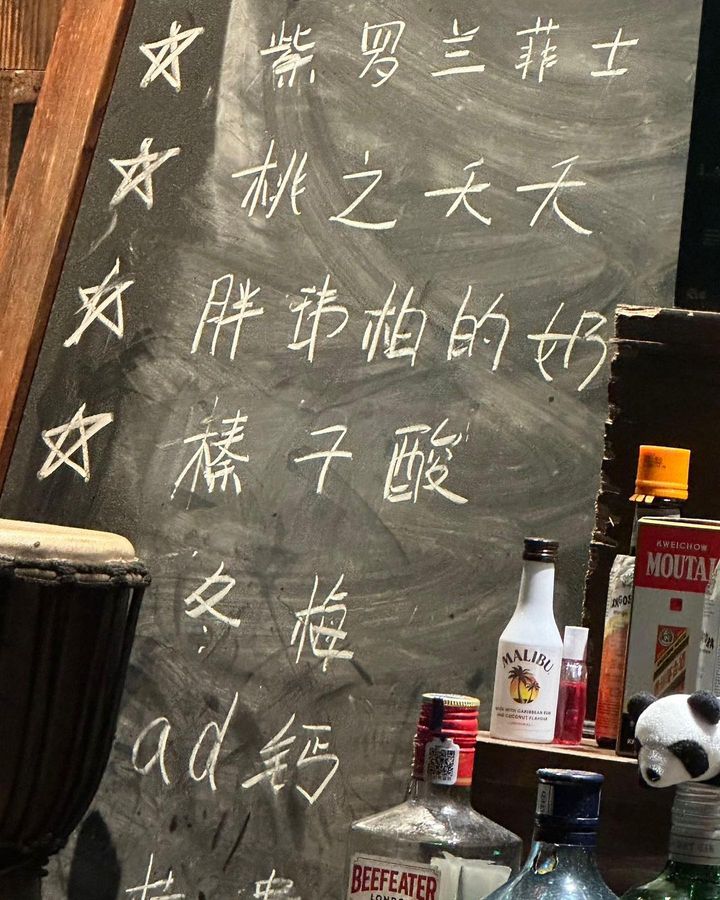 ☆ 紫罗兰菲士
☆ 桃之夭夭
☆ 胖玮柏的奶
☆ 榛子酸
冬梅
ad钙
MALIBU
KWEICHOW
MOUTAI
BEEFEATER
LONDON